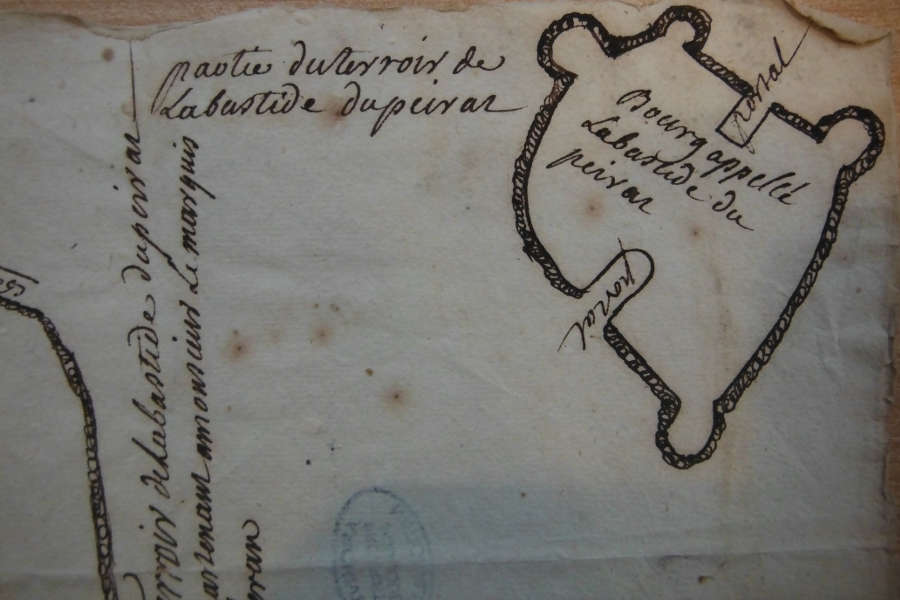 partie duterroir de
Labastide dupeirat
Bourg appellé
Labastide du
peirat
portal
portal
delabastide dupeirat
amonsieur Le marquis